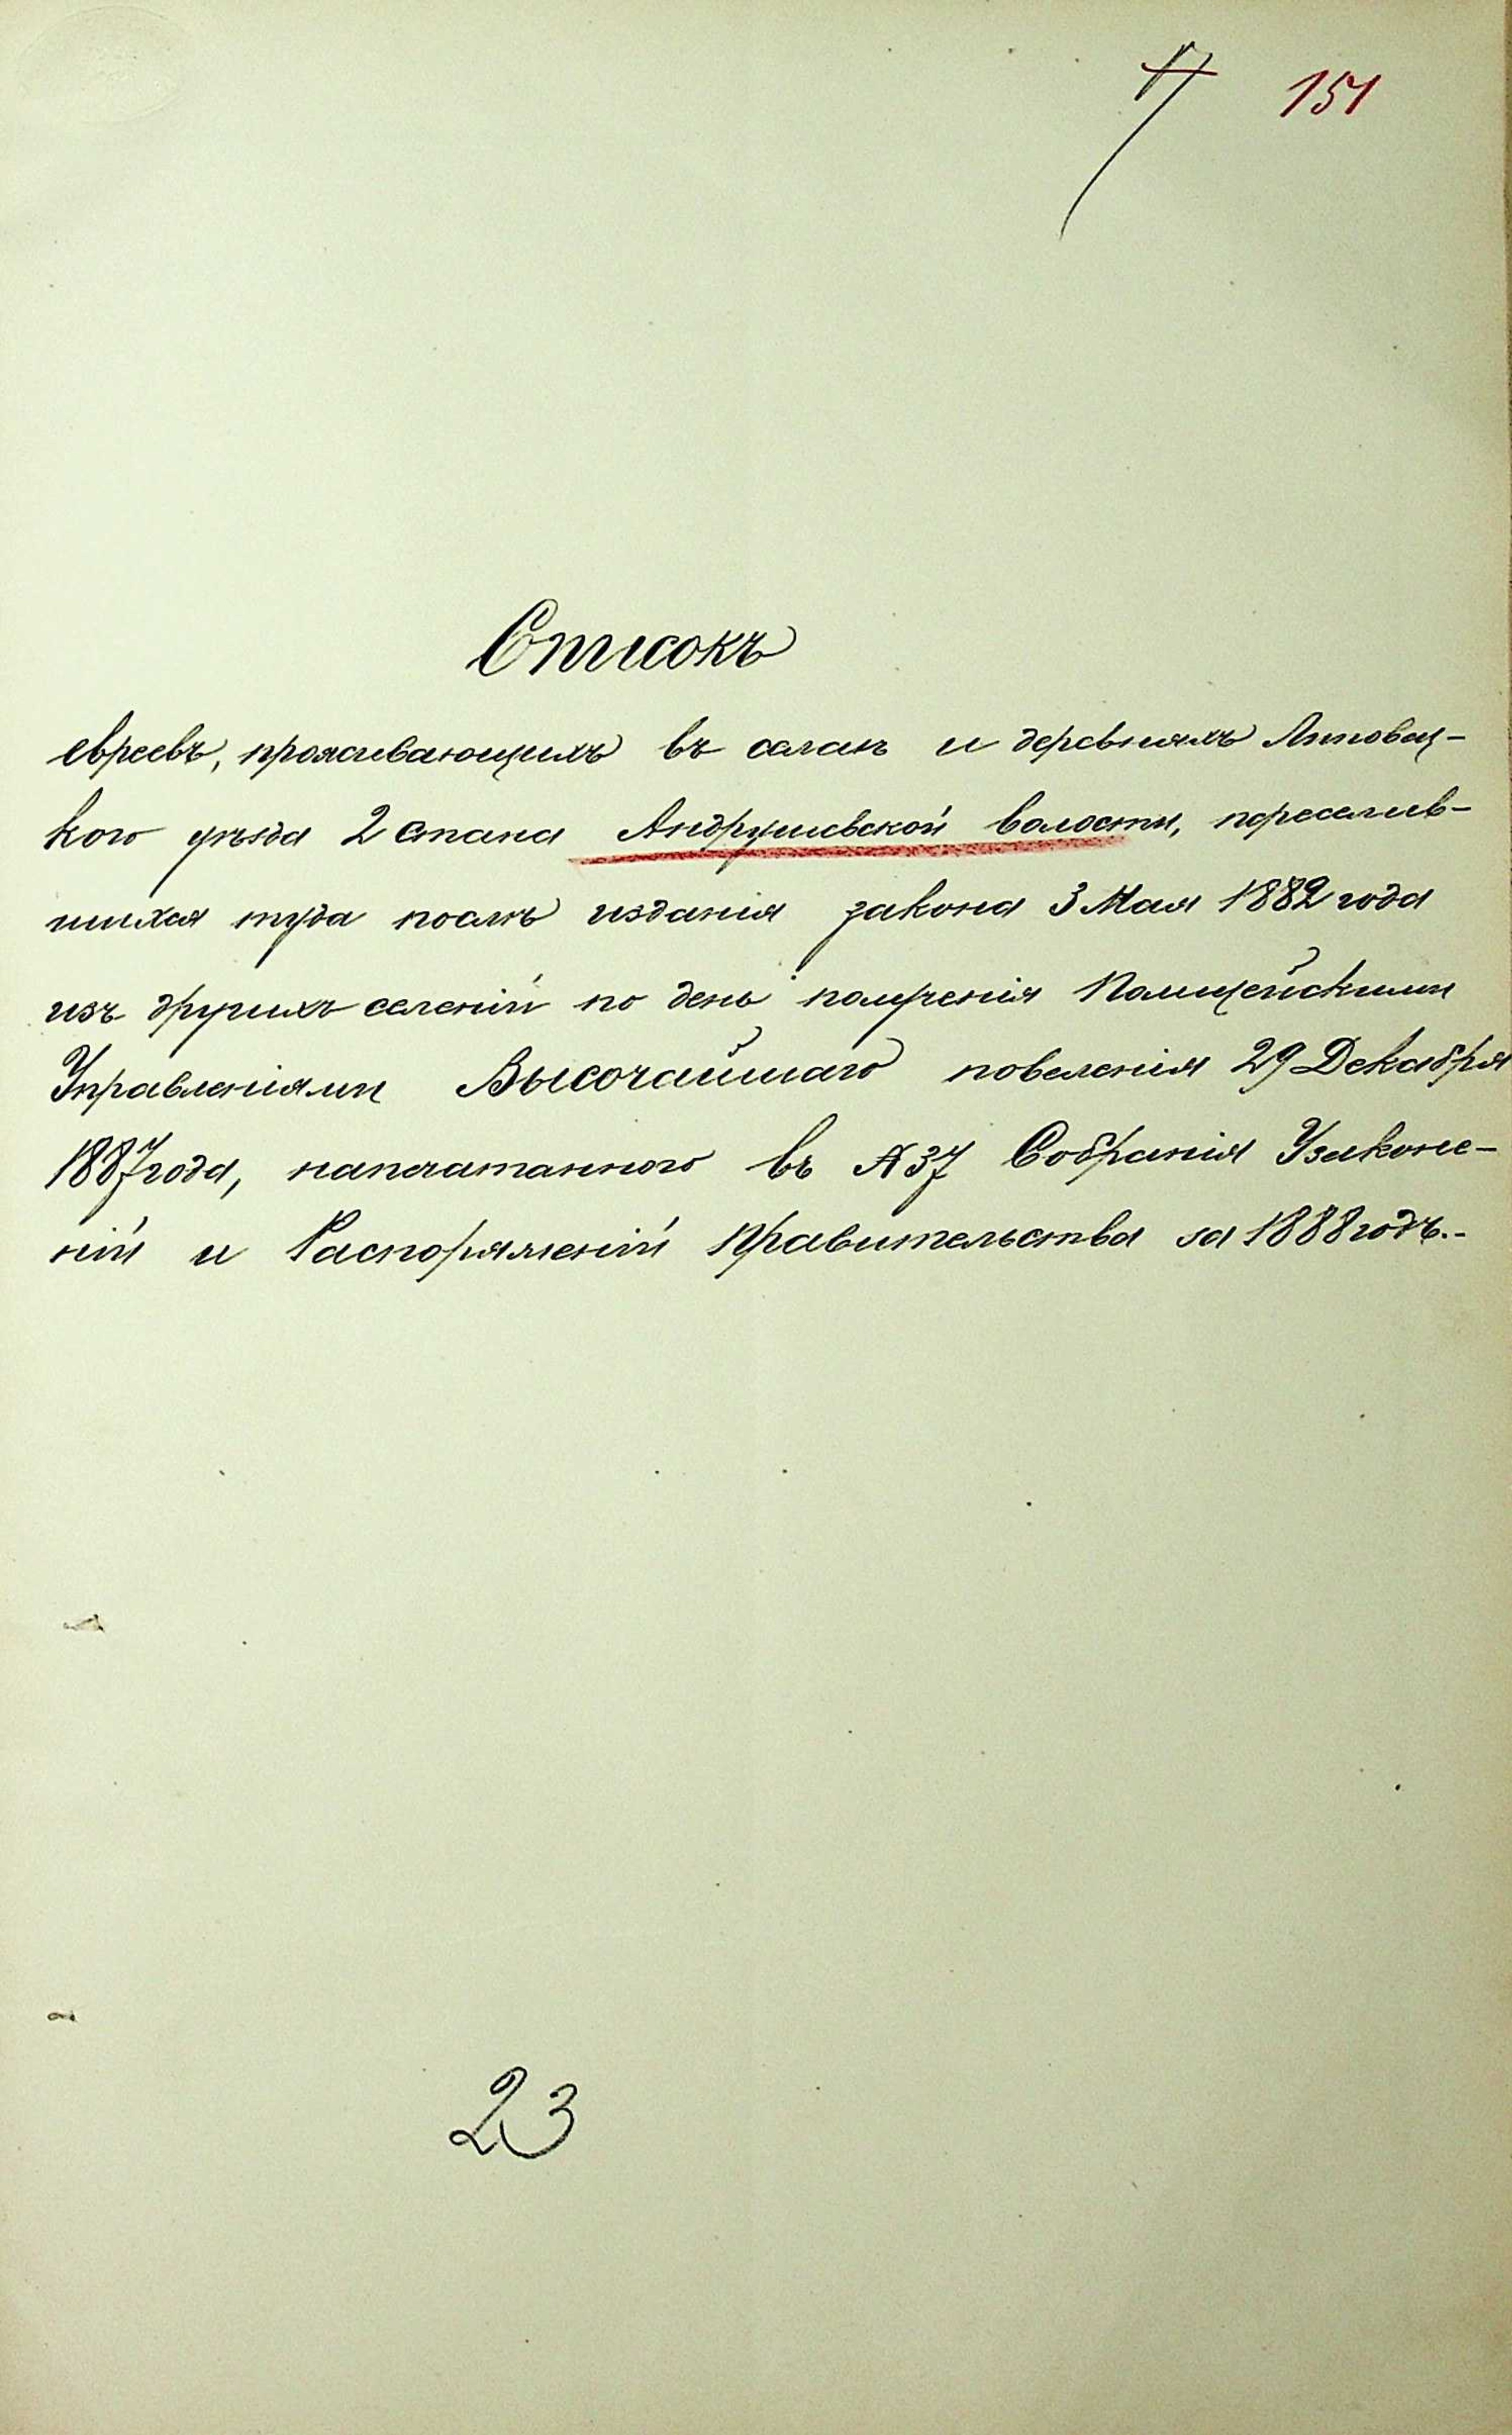 151
Списокъ
евреевъ, проживающихъ въ селахъ и деревняхъ Липовец-
кого уѣзда 2 стана Андрушевской волости, переселив-
шихся туда послѣ изданія закона 3 Мая 1882 года
изъ другихъ селеній по день полученія Полицейскими
Управленіями Высочайшаго повеленія 29 Декабря
1887 года, напечатанного въ № 37 Собранія Узаконе-
ній и Распоряженій Правительства за 1888 годъ.-
23